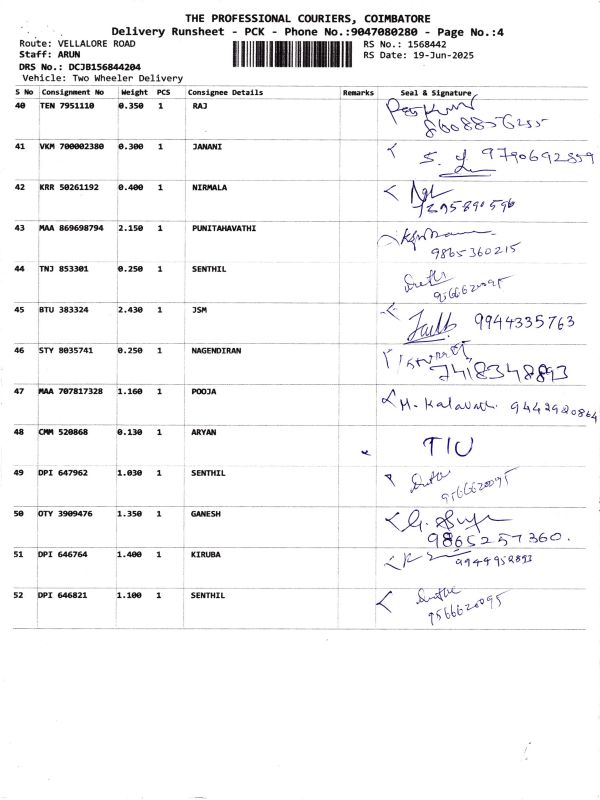 THE PROFESSIONAL COURIERS, COIMBATORE
Delivery Runsheet - PCK - Phone No.:9047080280 - Page No.:4
Route: VELLALORE ROAD RS No.: 1568442
Staff: ARUN RS Date: 19-Jun-2025
DRS No.: DCJB156844204
Vehicle: Two Wheeler Delivery
S No Consignment No Weight PCS Consignee Details Remarks Seal & Signature
40 TEN 7951110 0.350 1 RAJ
41 VKM 700002380 0.300 1 JANANI 9790692859
42 KRR 50261192 0.400 1 NIRMALA
7295890596
43 MAA 869698794 2.150 1 PUNITAHAVATHI
9865360215
44 TNJ 853301 0.250 1 SENTHIL
9566620095
45 BTU 383324 2.430 1 JSM 9944335763
46 STY 8035741 0.250 1 NAGENDIRAN
7418348893
47 MAA 707817328 1.160 1 POOJA M. Kalavathi 9442920864
48 CMM 520868 0.130 1 ARYAN TIU
49 DPI 647962 1.030 1 SENTHIL
9566620095
50 OTY 3909476 1.350 1 GANESH
9865257360.
51 DPI 646764 1.400 1 KIRUBA 9944952893
52 DPI 646821 1.100 1 SENTHIL
9566620095